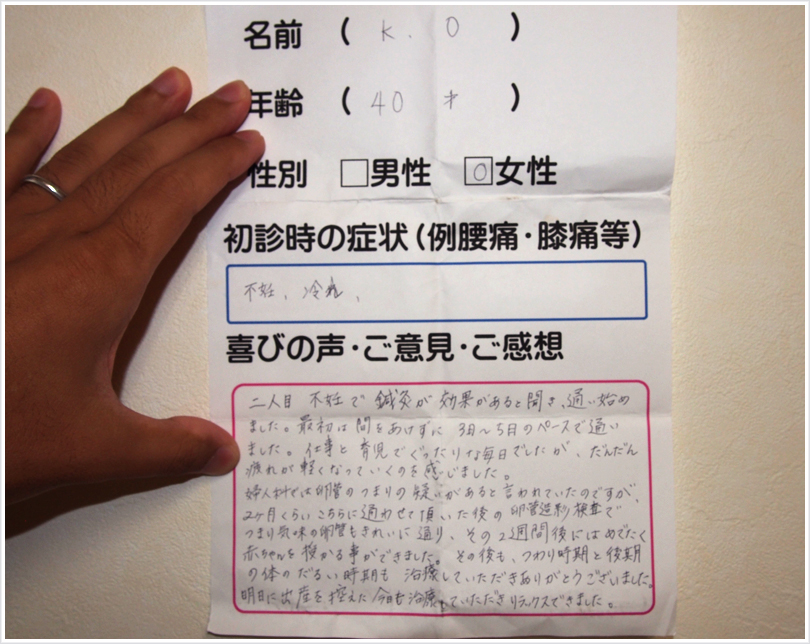 名前 ( K. O )
年齢 ( 40 才 )
性別 □男性 ☑女性
初診時の症状(例腰痛・膝痛等)
不妊、冷え、
喜びの声・ご意見・ご感想
二人目 不妊で 鍼灸が 効果があると聞き、通い始め
ました。最初は間をあけずに 3日〜5日のペースで通い
ました。仕事と育児でぐったりな毎日でしたが、だんだん
疲れが軽くなっていくのを感じました。
婦人科では卵管のつまりの疑いがあると言われていたのですが、
2ヶ月くらいこちらに通わせて頂いた後の卵管造影検査で
つまり気味の卵管もきれいに通り、その2週間後にはめでたく
赤ちゃんを授かる事ができました。その後も、つわり時期と後期
の体のだるい時期も 治療していただきありがとうございました。
明日に出産を控えた今日も治療していただきリラックスできました。